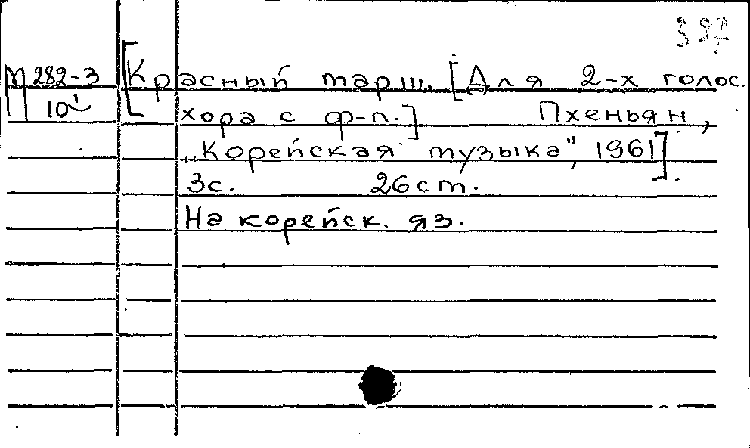 М 282-3
10
[Красный марш. [Для 2-х голос.
хора с ф-п.] Пхеньян,
„Корейская музыка", 1961].
3с. 26 см.
На корейск. яз.